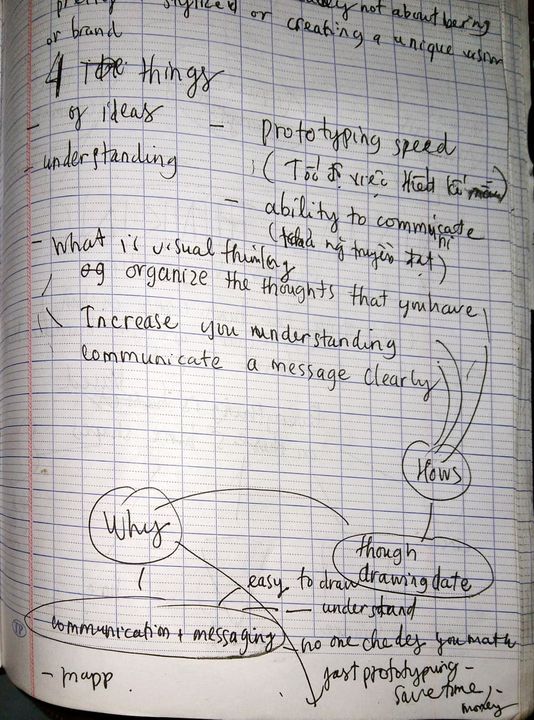 stylized or creating a unique vision
not about being
or brand
4 things
- of ideas
- understanding
- prototyping speed
(Tốc độ việc thiết kế mẫu)
- ability to commucaste
ni
- What is visual thinking
organize the thoughts that you have
Increase you understanding
communicate a message clearly
Hows
Why
though
drawing date
easy to draw
— understand
communication + messaging
- no one you math
fast prototyping -
save time, -
money
- mapp.